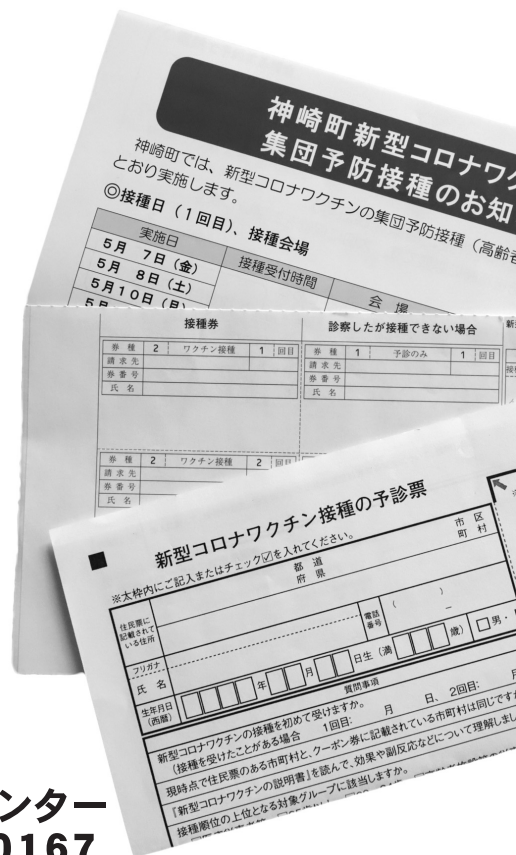 神崎町新型コロナワク
集団予防接種のお知
神崎町では、新型コロナワクチンの集団予防接種（高齢者
とおり実施します。
◎接種日（1回目）、接種会場
実施日 接種受付時間 会場
5月 7日（金）
5月 8日（土）
5月10日（月）
接種券 診察したが接種できない場合
券種 2 ワクチン接種 1 回目 券種 1 予診のみ 1 回目
請求先 請求先
券番号 券番号
氏名 氏名
券種 2 ワクチン接種 2 回目
請求先
券番号
氏名
新型コロナワクチン接種の予診票
※太枠内にご記入またはチェック☑を入れてください。
住民票に
記載されて
いる住所
都道
府県
市区
町村
フリガナ
氏名
電話
番号
（ ） −
生年月日
（西暦）
年 月 日生（満 歳） □男・
質問事項
新型コロナワクチンの接種を初めて受けますか。
（接種を受けたことがある場合 1回目: 月 日、2回目: 月
現時点で住民票のある市町村と、クーポン券に記載されている市町村は同じですか
『新型コロナワクチンの説明書』を読んで、効果や副反応などについて理解しまし
接種順位の上位となる対象グループに該当しますか。
ンター
0167